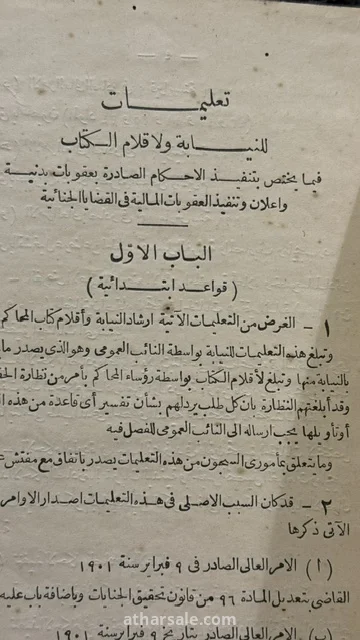 تعليمات
للنيابة ولاقلام الكتاب
فيما يختص بتنفيذ الاحكام الصادرة بعقوبات بدنية
واعلان وتنفيذ العقوبات المالية فى القضايا الجنائية
الباب الاوّل
( قواعد ابتدائية )
١ - الغرض من التعليمات الآتية ارشاد النيابة وأقلام كتاب المحاكم
وتبلغ هذه التعليمات للنيابة بواسطة النائب العمومى وهو الذى يصدر ما
بالنيابة منها وتبلغ لأقلام الكتاب بواسطة رؤساء المحاكم بأمر من نظارة
وقد أبلغتهم النظارة بان كل طلب يرد لهم بشأن تفسير أى قاعدة من هذه
أو تأويلها يجب ارساله الى النائب العمومى للفصل فيه
وما يتعلق بمأمورى السجون من هذه التعليمات يصدر باتفاق مع مفتش
٢ - قد كان السبب الاصلى فى هذه التعليمات اصدار الاوامر
الآتى ذكرها
(ا) الامر العالى الصادر فى ٩ فبراير سنة ١٩٠١
القاضى بتعديل المادة ٩٦ من قانون تحقيق الجنايات وباضافة باب عليه
(ب) الامر العالى الصادر بتاريخ ٩ فبراير سنة ١٩٠١
atharsale.com